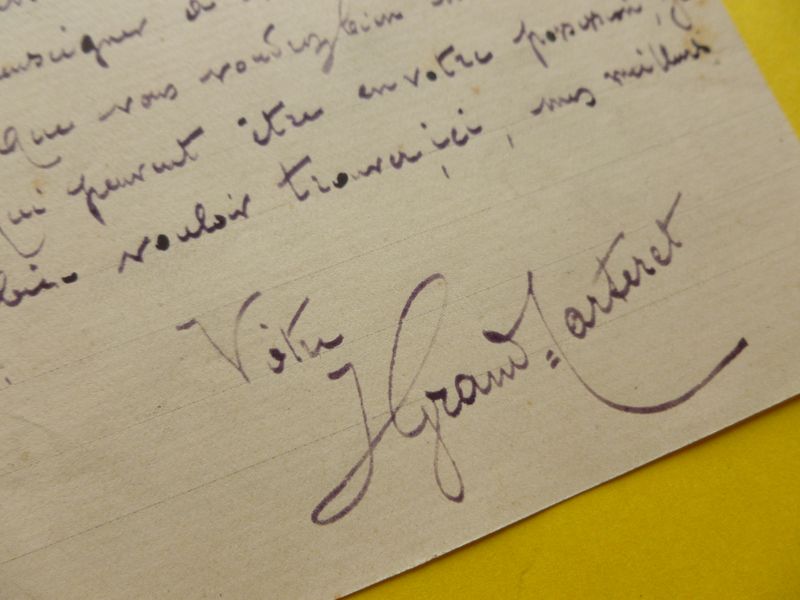 que vous voudrez bien
qui peuvent être en votre possession, je
bien vouloir trouver ici, mes meilleurs
Votre
J Grand-Carteret